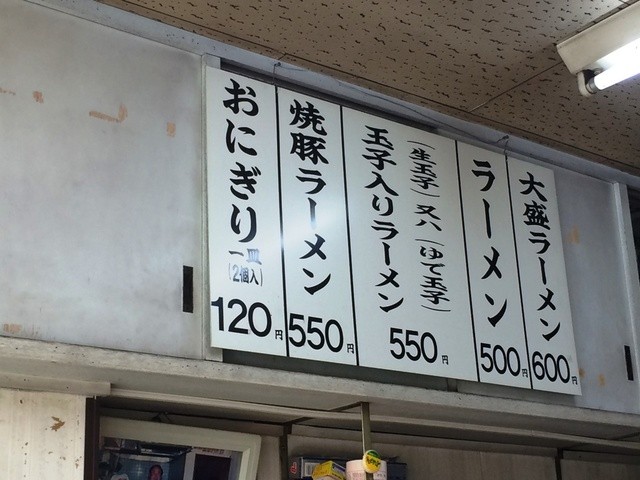 大盛ラーメン
600円
ラーメン
500円
(生玉子)又ハ(ゆで玉子)
玉子入りラーメン
550円
焼豚ラーメン
550円
おにぎり
一皿
(2個入)
120円